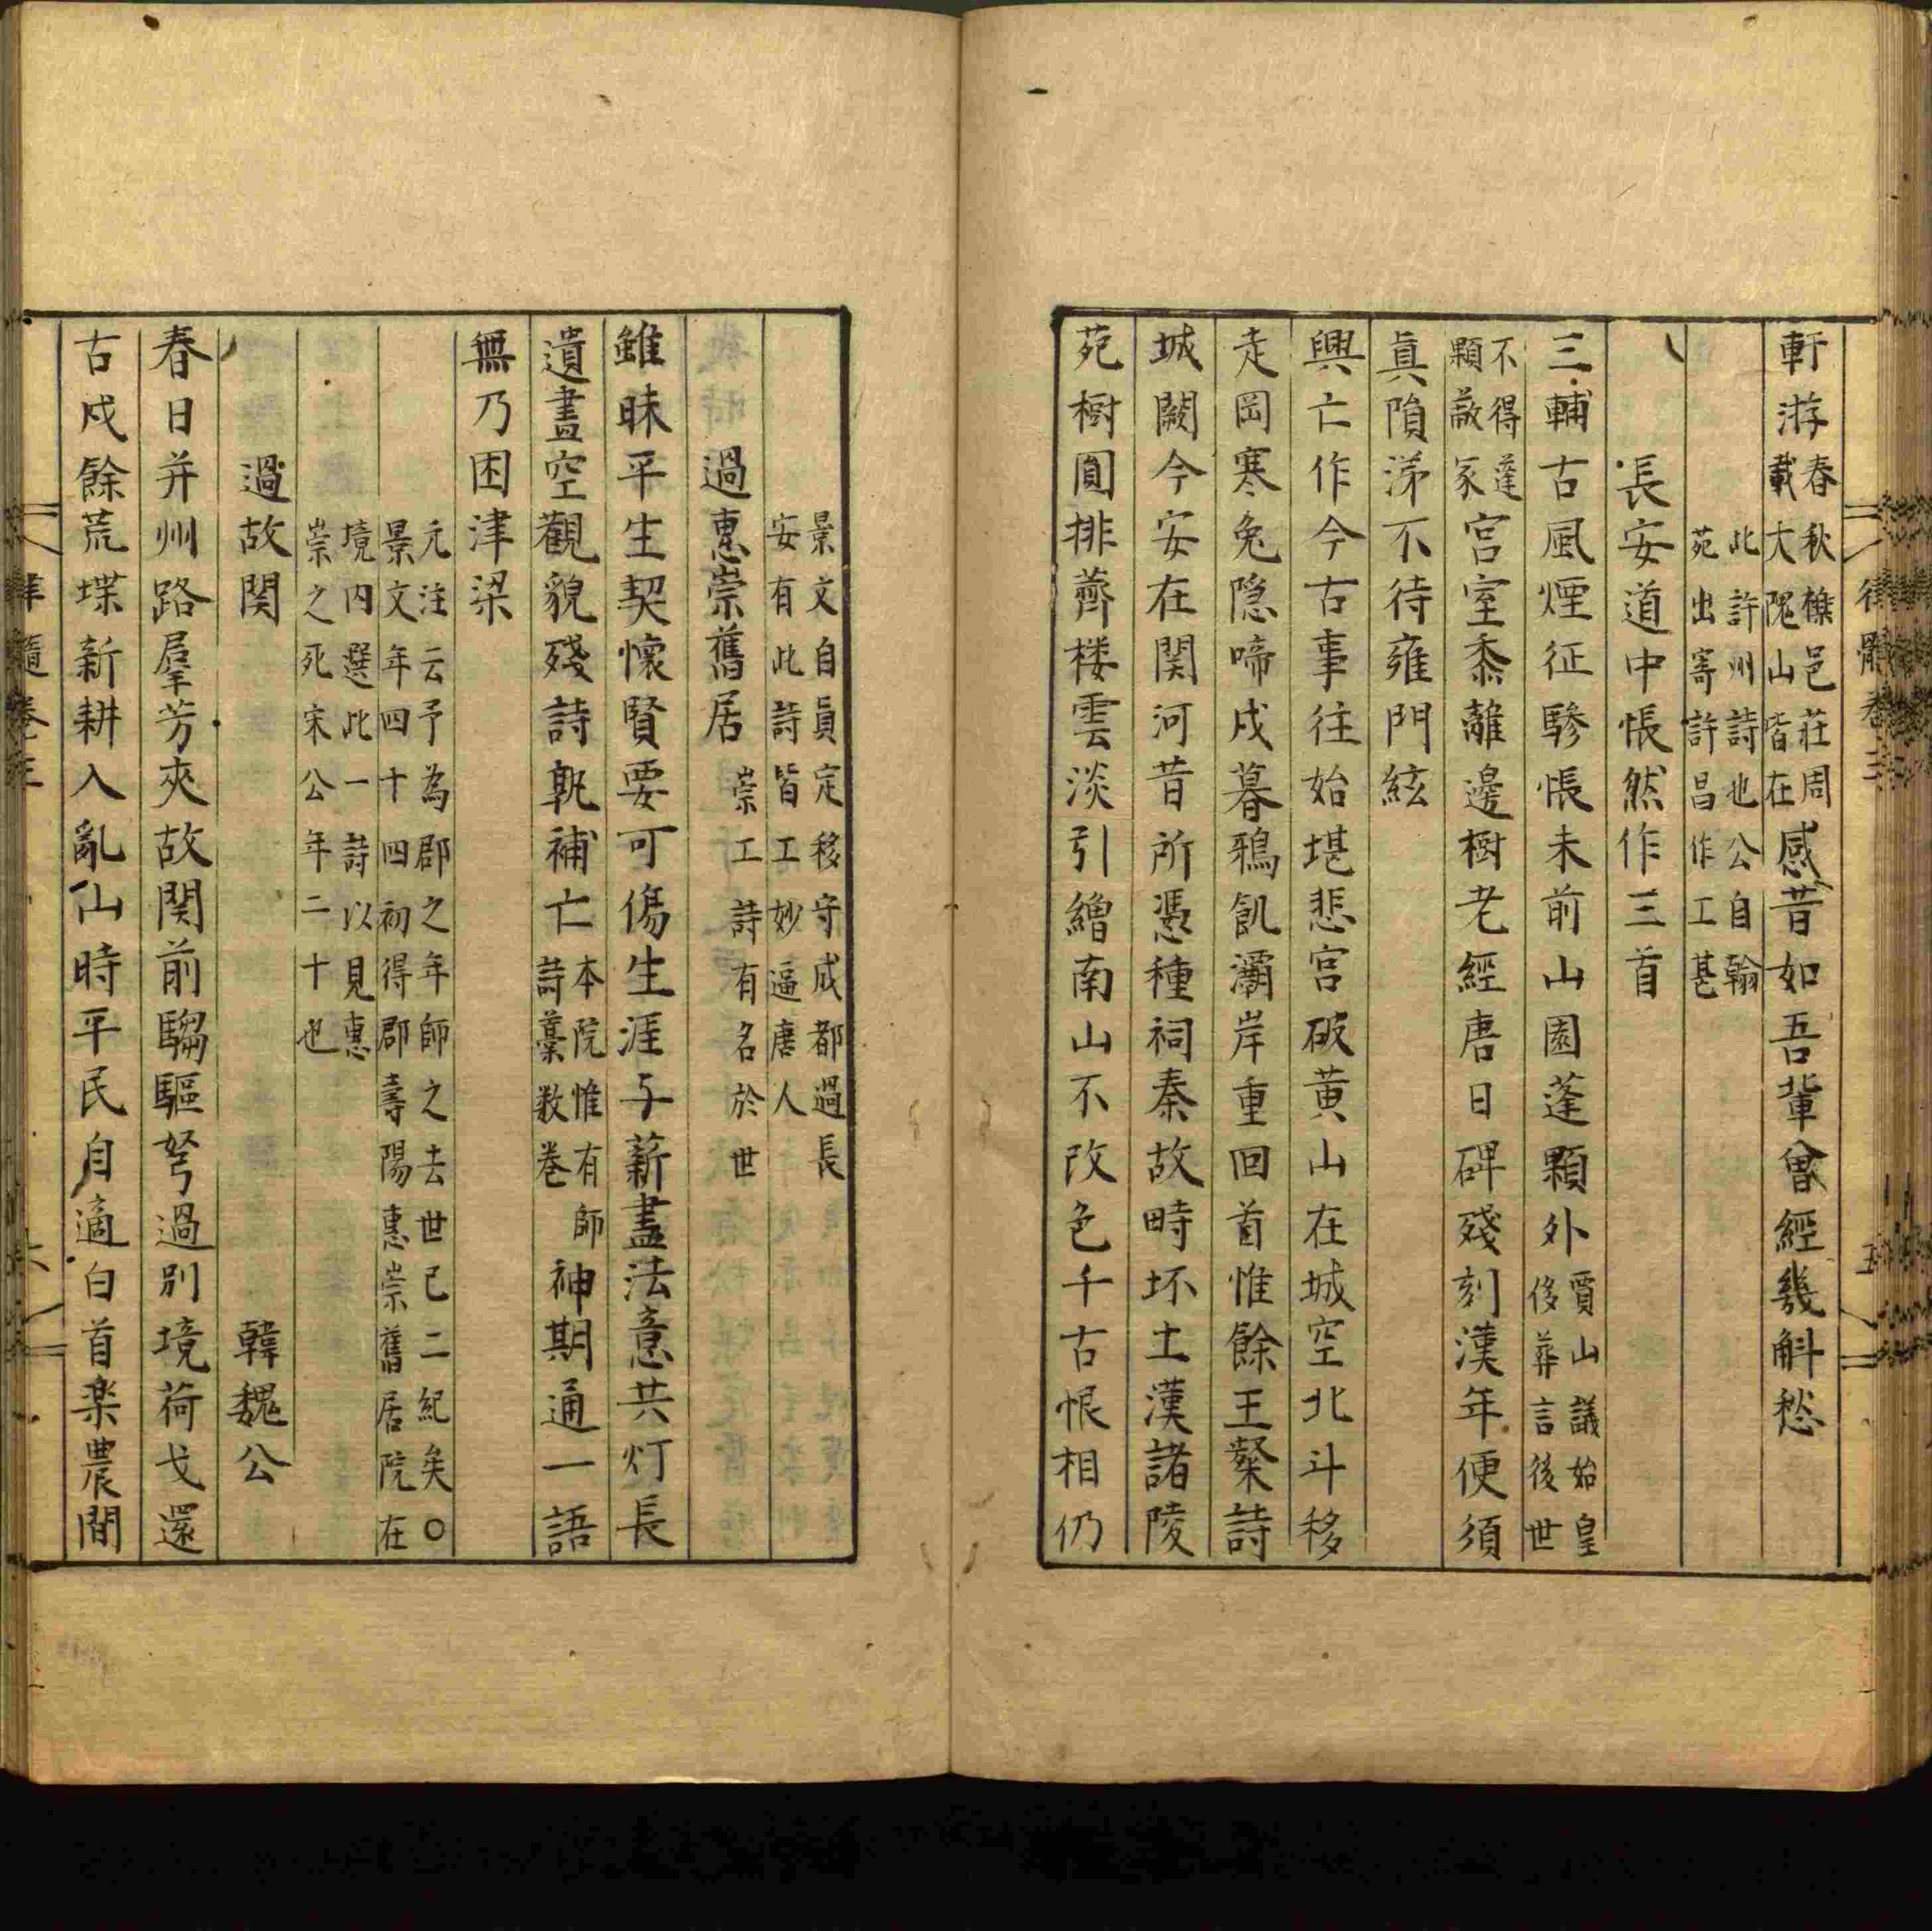 律髓卷三
五
軒游春秋樵邑莊周載大隗山皆在感昔如吾輩曾經幾斛愁
此許州詩也公自翰苑出寄許昌作工甚
長安道中悵然作三首
三輔古風煙征驂悵未前山園蓬顆外賈山議始皇侈葬言後世
不得蓬顆蔽冢宮室黍離邊樹老經唐日碑殘刻漢年便須
真隕涕不待雍門絃
興亡作今古事往始堪悲宮破黃山在城空北斗移
走岡寒兔隐啼戍暮鴉飢灞岸重回首惟餘王粲詩
城闕今安在関河昔所憑種祠秦故畤坏土漢諸陵
苑樹圓排薺楼雲淡引繒南山不改色千古恨相仍
景文自員定移守成都過長安有此詩皆工妙逼唐人
過惠崇舊居崇工詩有名於世
雖昧平生契懷賢要可傷生涯与薪盡法意共灯長
遺畫空觀貌殘詩孰補亡本院惟有師詩藁数卷神期通一語
無乃困津梁
元注云予為郡之年師之去世已二紀矣〇景文年四十四初得郡壽陽惠崇舊居院在
境内選此一詩以見惠崇之死宋公年二十也
過故関 韓魏公
春日并州路羣芳夾故関前騶驅弩過別境荷戈還
古戍餘荒堞新耕入亂山時平民自適白首楽農間
律髓卷三
六